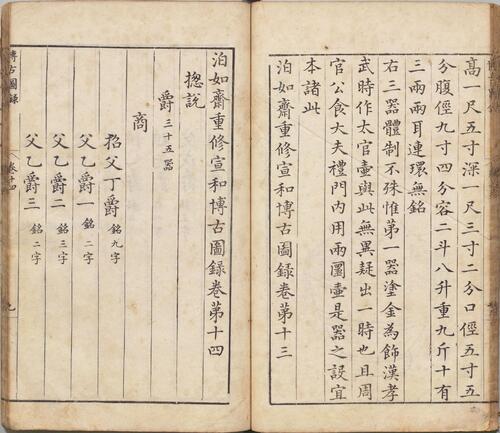 高一尺五寸深一尺三寸二分口徑五寸五
分腹徑九寸四分容二斗八升重九斤十有
三兩兩耳連環無銘
右三器體制不殊惟第一器塗金為飾漢孝
武時作太官壺與此無異疑出一時也且周
官公食大夫禮門內用兩圜壺是器之設宜
本諸此
泊如齋重修宣和博古圖錄卷第十三
泊如齋重修宣和博古圖錄卷第十四
揔說
爵三十五器
商
招父丁爵銘九字
父乙爵一銘二字
父乙爵二銘三字
父乙爵三銘二字
博古圖錄 卷十四 九